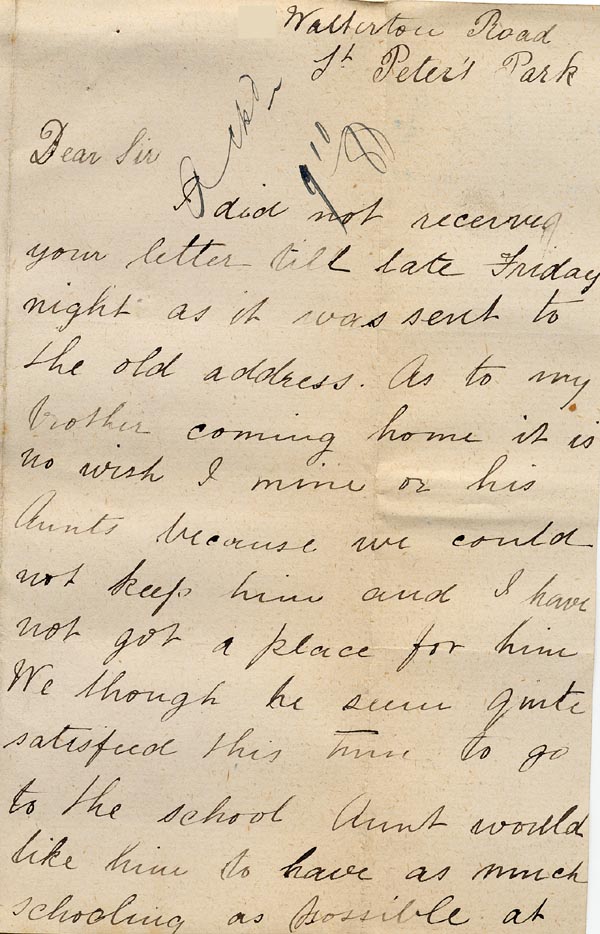 Walterton Road
St Peter's Park
Ackd
9/11
Dear Sir
I did not received
your letter till late Friday
night as it was sent to
the old address. As to my
brother coming home it is
no wish I mine or his
Aunts because we could
not keep him and I have
not got a place for him
We though he seem quite
satisfied this time to go
to the school Aunt would
like him to have as much
schooling as possible at